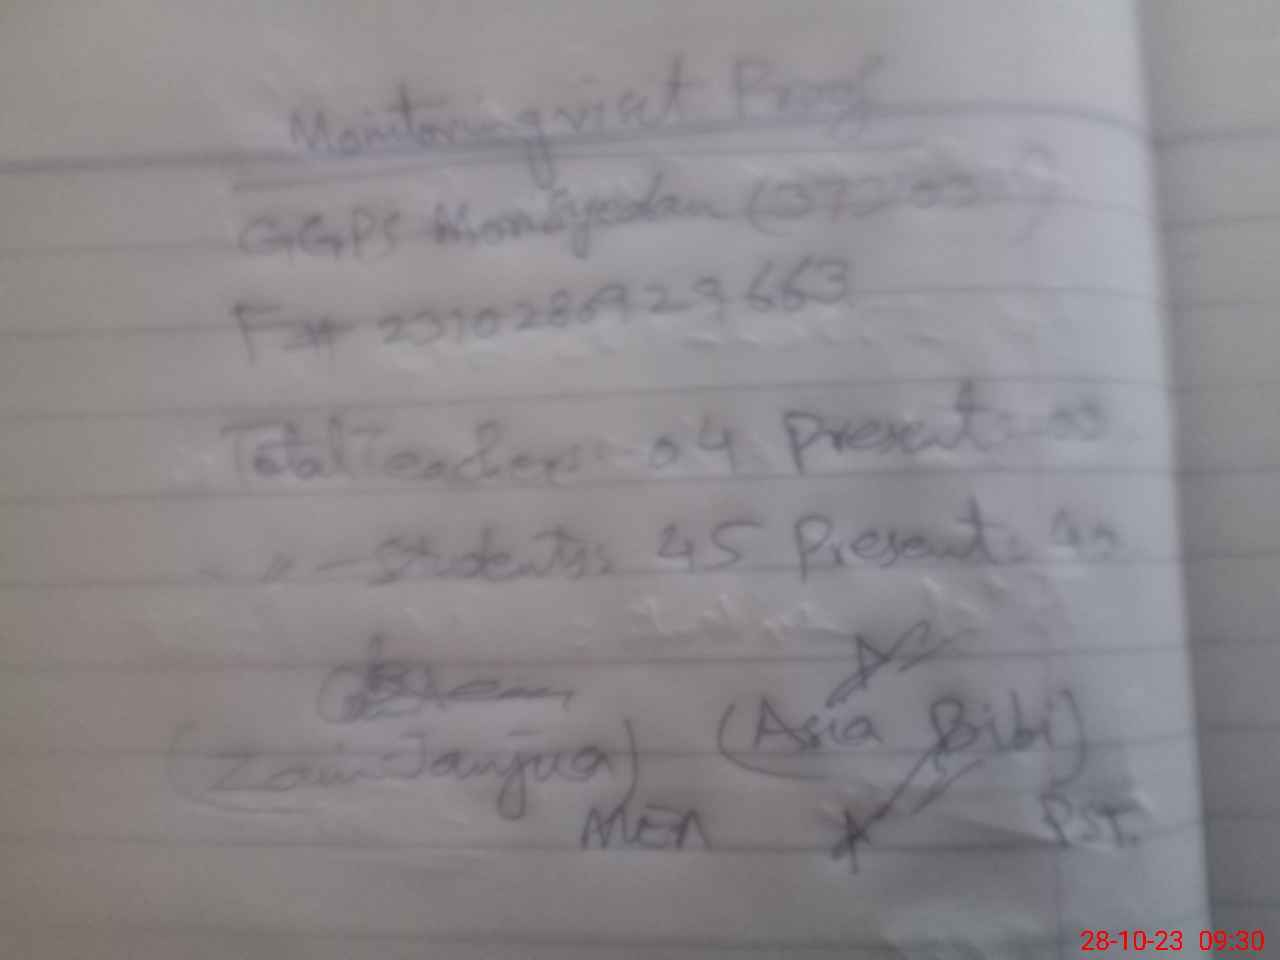 Monitoring visit Proof
GGPS
F# 2310286929663
Total Teachers: 04 Present: 03
" Students: 45 Present:
(Zain Janjua) (Asia Bibi)
MEA PST.
28-10-23 09:30